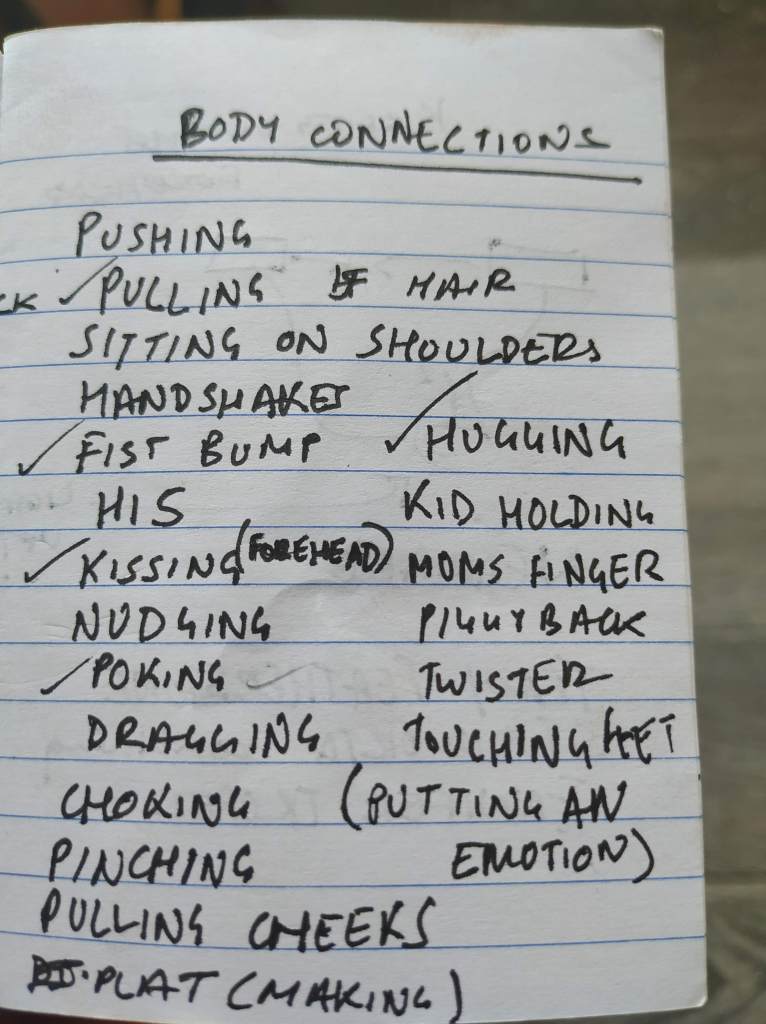 BODY CONNECTIONS
PUSHING
CK ✓ PULLING HAIR
SITTING ON SHOULDERS
HANDSHAKES
✓ FIST BUMP
HIS
✓ KISSING (FOREHEAD)
NUDGING
✓ POKING ✓
DRAGGING
CHOKING
PINCHING
PULLING CHEEKS
PLAT (MAKING)
✓ HUGGING
KID HOLDING
MOMS FINGER
PIGGY BACK
TWISTER
TOUCHING FEET
(PUTTING AN
EMOTION)